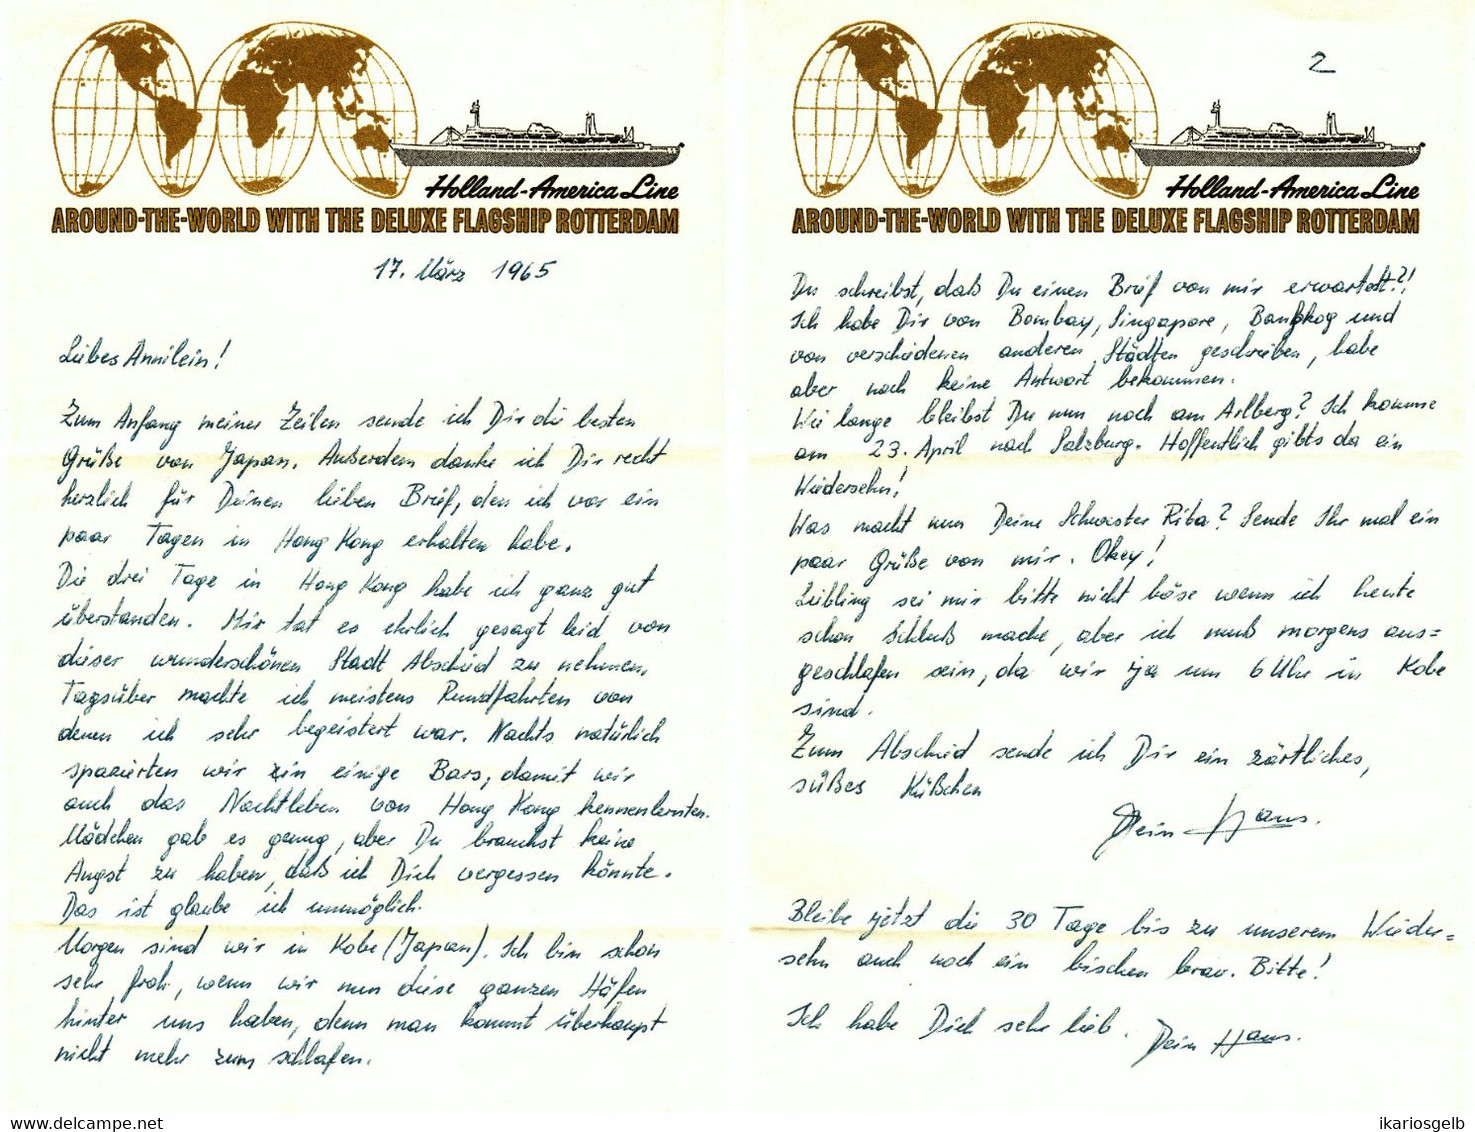 Holland-America Line
AROUND-THE-WORLD WITH THE DELUXE FLAGSHIP ROTTERDAM
17. März 1965
Liebes Annilein!
Zum Anfang meiner Zeilen sende ich Dir die besten
Grüße von Japan. Außerdem danke ich Dir recht
herzlich für Deinen lieben Brief, den ich vor ein
paar Tagen in Hong Kong erhalten habe.
Die drei Tage in Hong Kong habe ich ganz gut
überstanden. Mir tat es ehrlich gesagt leid von
dieser wunderschönen Stadt Abschied zu nehmen.
Tagsüber machte ich meistens Rundfahrten von
denen ich sehr begeistert war. Nachts natürlich
spazierten wir in einige Bars, damit wir
auch das Nachtleben von Hong Kong kennenlernten.
Mädchen gab es genug, aber Du brauchst keine
Angst zu haben, daß ich Dich vergessen könnte.
Das ist glaube ich unmöglich.
Morgen sind wir in Kobe (Japan). Ich bin schon
sehr froh, wenn wir nun diese ganzen Häfen
hinter uns haben, denn man kommt überhaupt
nicht mehr zum schlafen.
2
Holland-America Line
AROUND-THE-WORLD WITH THE DELUXE FLAGSHIP ROTTERDAM
Du schreibst, daß Du einen Brief von mir erwartest?!
Ich habe Dir von Bombay, Singapore, Bangkog und
von verschiedenen anderen Städten geschrieben, habe
aber noch keine Antwort bekommen.
Wie lange bleibst Du nun noch am Arlberg? Ich komme
am 23. April nach Salzburg. Hoffentlich gibts da ein
Wiedersehn!
Was macht nun Deine Schwester Rita? Sende Ihr mal ein
paar Grüße von mir. Okey!
Liebling sei mir bitte nicht böse wenn ich heute
schon Schluß mache, aber ich muß morgens aus=
geschlafen sein, da wir ja um 6 Uhr in Kobe
sind.
Zum Abschied sende ich Dir ein zärtliches,
süßes Küßchen
Dein Hans.
Bleibe jetzt die 30 Tage bis zu unserem Wieder=
sehn auch noch ein bischen brav. Bitte!
Ich habe Dich sehr lieb. Dein Hans.
www.delcampe.net
ikariosgelb